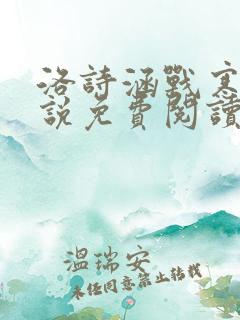 洛詩涵戰寒
說免費閱讀
溫瑞安
未經同意禁止轉載